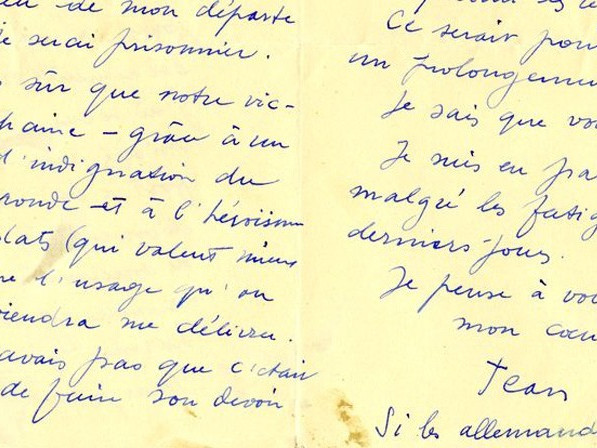 de mon départe
je serai prisonnier.
sûr que notre vic-
haine - grâce à un
d'indignation du
monde et à l'héroïsme
(qui valent mieux
l'usage qu'on
viendra me délivrer.
avais pas que c'était
de faire son devoir
Ce serait pour
un prolongeme
Je sais que vo
Je suis en pa
malgré les fatig
derniers jours.
Je pense à vo
mon cœu
Jean
Si les allemand